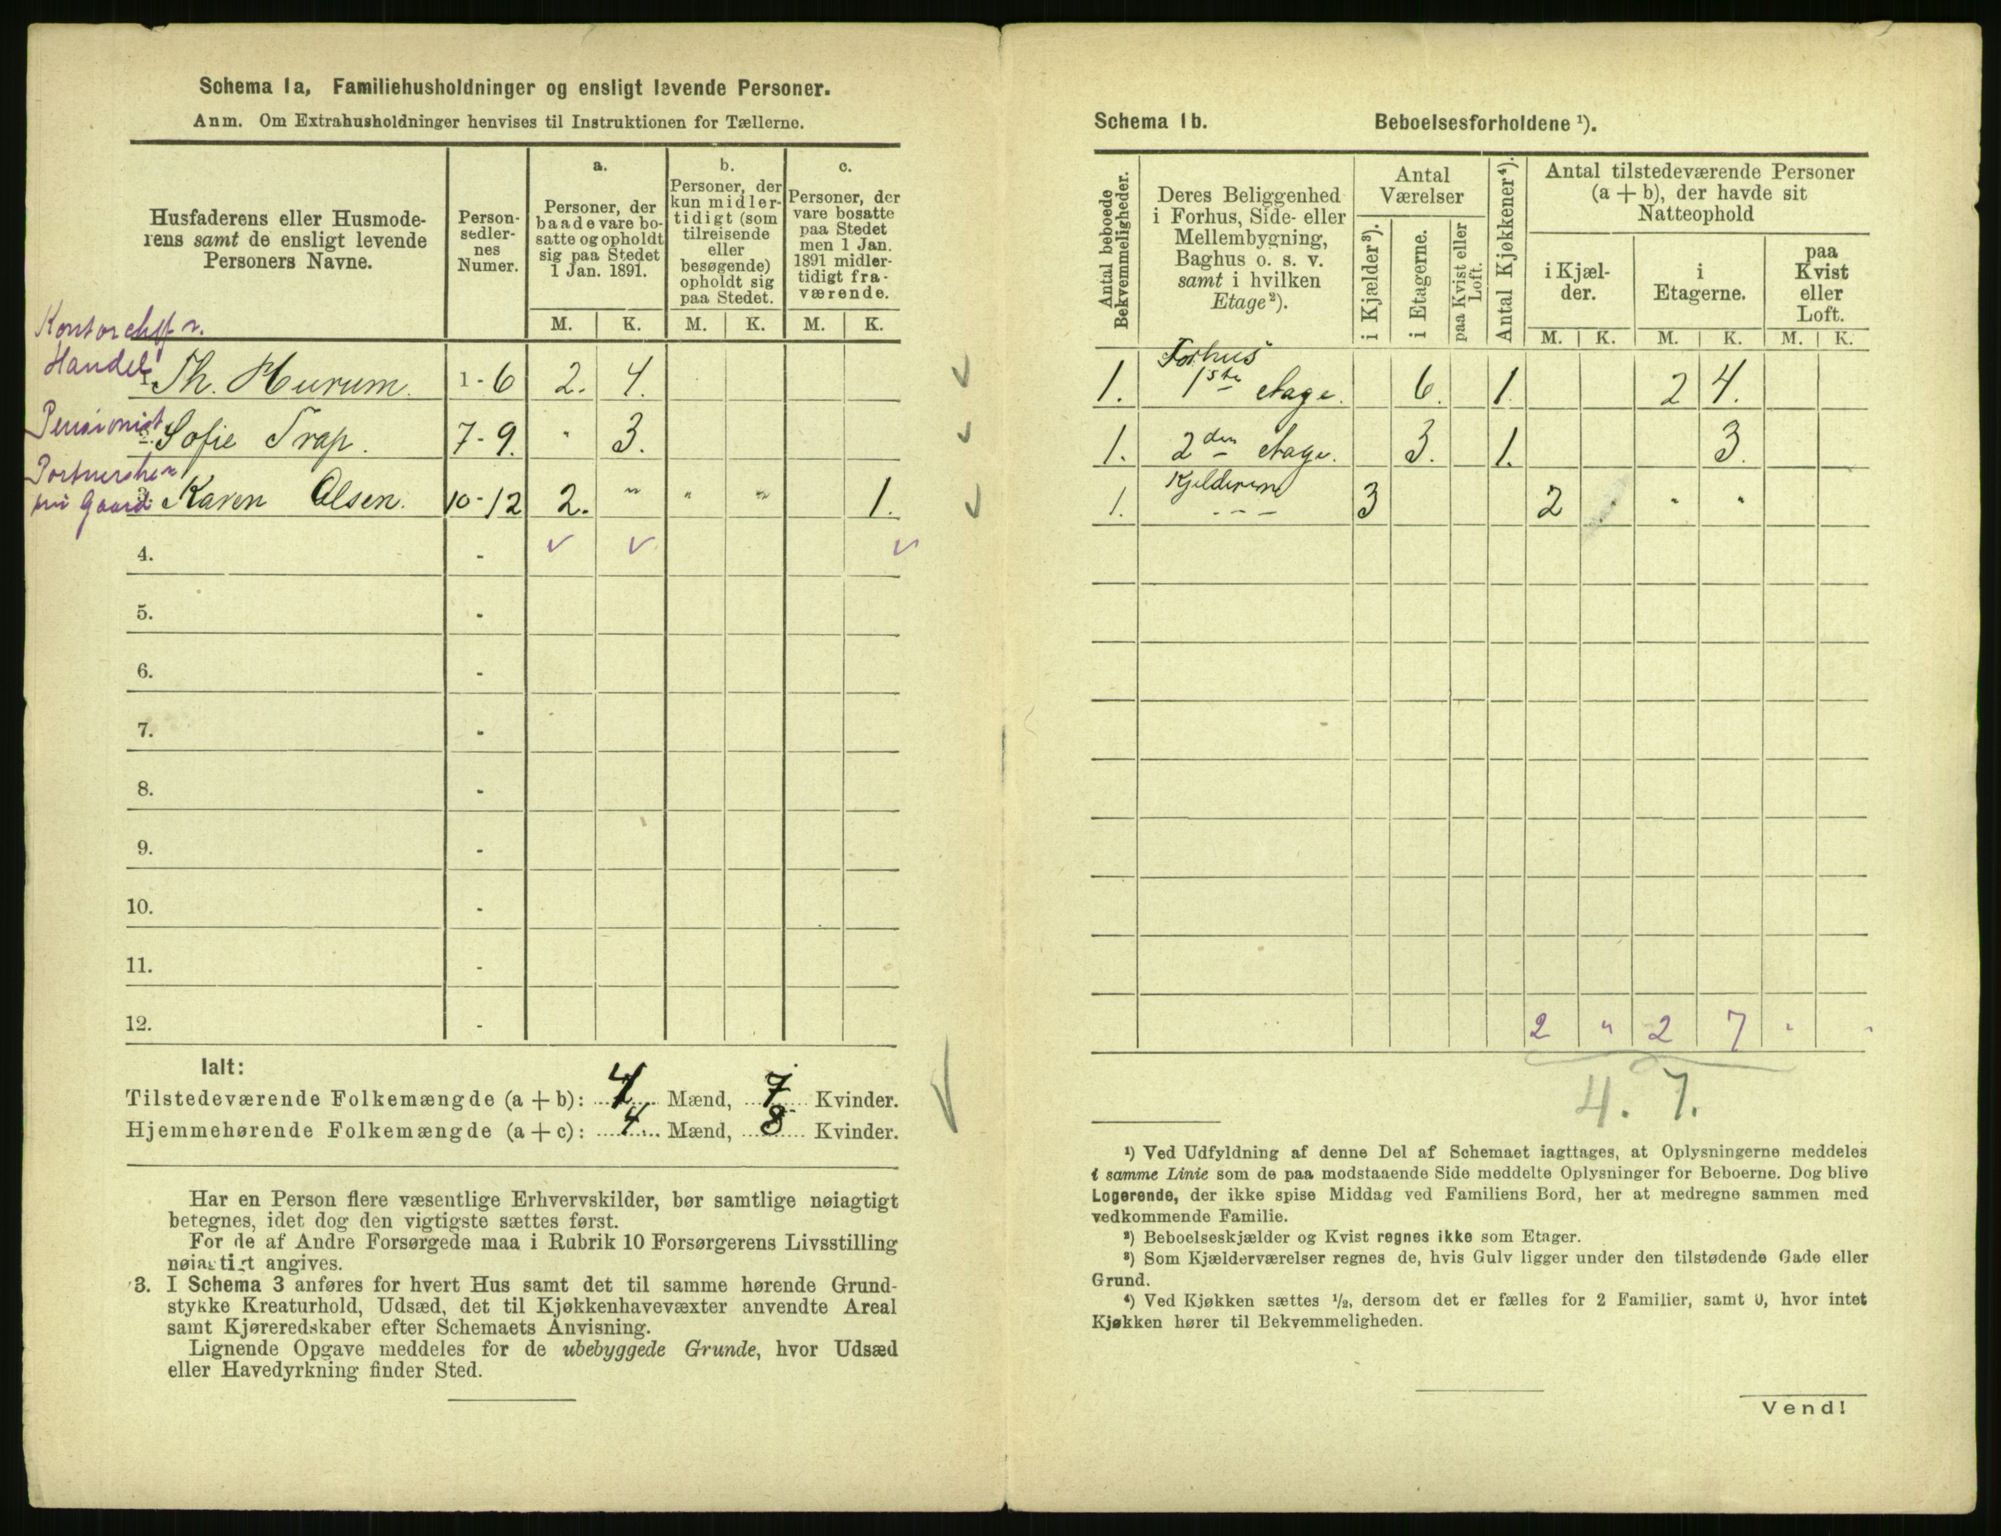 Schema 1a, Familiehusholdninger og ensligt levende Personer.
Anm. Om Extrahusholdninger henvises til Instruktionen for Tællerne.
Husfaderens eller Husmode-
rens samt de ensligt levende
Personers Navne.
Person-
sedler-
nes
Numer.
a.
Personer, der
baade vare bo-
satte og opholdt
sig paa Stedet
1 Jan. 1891.
b.
Personer, der
kun midler-
tidigt (som
tilreisende
eller
besøgende)
opholdt sig
paa Stedet.
c.
Personer, der
vare bosatte
paa Stedet
men 1 Jan.
1891 midler-
tidigt fra-
værende.
M. K. M. K. M. K.
Handel
1. Th. Hurum. 1-6 2. 4.
Pensionist
Sofie Trap. 7-9. " 3.
Gaard
3. Karen Olsen. 10-12 2. " " " 1.
4. -
5. -
6. -
7. -
8. -
9. -
10. -
11. -
12. -
Ialt:
Tilstedeværende Folkemængde (a + b): 4 Mænd, 7 Kvinder.
Hjemmehørende Folkemængde (a + c): 4 Mænd, 8 Kvinder.
Har en Person flere væsentlige Erhvervskilder, bør samtlige nøiagtigt
betegnes, idet dog den vigtigste sættes først.
For de af Andre Forsørgede maa i Rubrik 10 Forsørgerens Livsstilling
nøiagtigt angives.
3. I Schema 3 anføres for hvert Hus samt det til samme hørende Grund-
stykke Kreaturhold, Udsæd, det til Kjøkkenhavevæxter anvendte Areal
samt Kjøreredskaber efter Schemaets Anvisning.
Lignende Opgave meddeles for de ubebyggede Grunde, hvor Udsæd
eller Havedyrkning finder Sted.
Schema 1b. Beboelsesforholdene ¹).
Antal beboede
Bekvemmeligheder.
Deres Beliggenhed
i Forhus, Side- eller
Mellembygning,
Baghus o. s. v.
samt i hvilken
Etage ²).
Antal
Værelser
i Kjælder ³).
i Etagerne.
paa Kvist eller
Loft.
Antal Kjøkkener ⁴).
Antal tilstedeværende Personer
(a + b), der havde sit
Natteophold
i Kjæl-
der.
i
Etagerne.
paa
Kvist
eller
Loft.
M. K. M. K. M. K.
Forhus
1. 1ste etage. 6. 1. 2 4.
1. 2den etage. 3. 1. 3.
1. Kjelderen 3 2 " "
2 " 2 7 " "
4. 7.
¹) Ved Udfyldning af denne Del af Schemaet iagttages, at Oplysningerne meddeles
i samme Linie som de paa modstaaende Side meddelte Oplysninger for Beboerne. Dog blive
Logerende, der ikke spise Middag ved Familiens Bord, her at medregne sammen med
vedkommende Familie.
²) Beboelseskjælder og Kvist regnes ikke som Etager.
³) Som Kjælderværelser regnes de, hvis Gulv ligger under den tilstødende Gade eller
Grund.
⁴) Ved Kjøkken sættes ½, dersom det er fælles for 2 Familier, samt 0, hvor intet
Kjøkken hører til Bekvemmeligheden.
Vend!